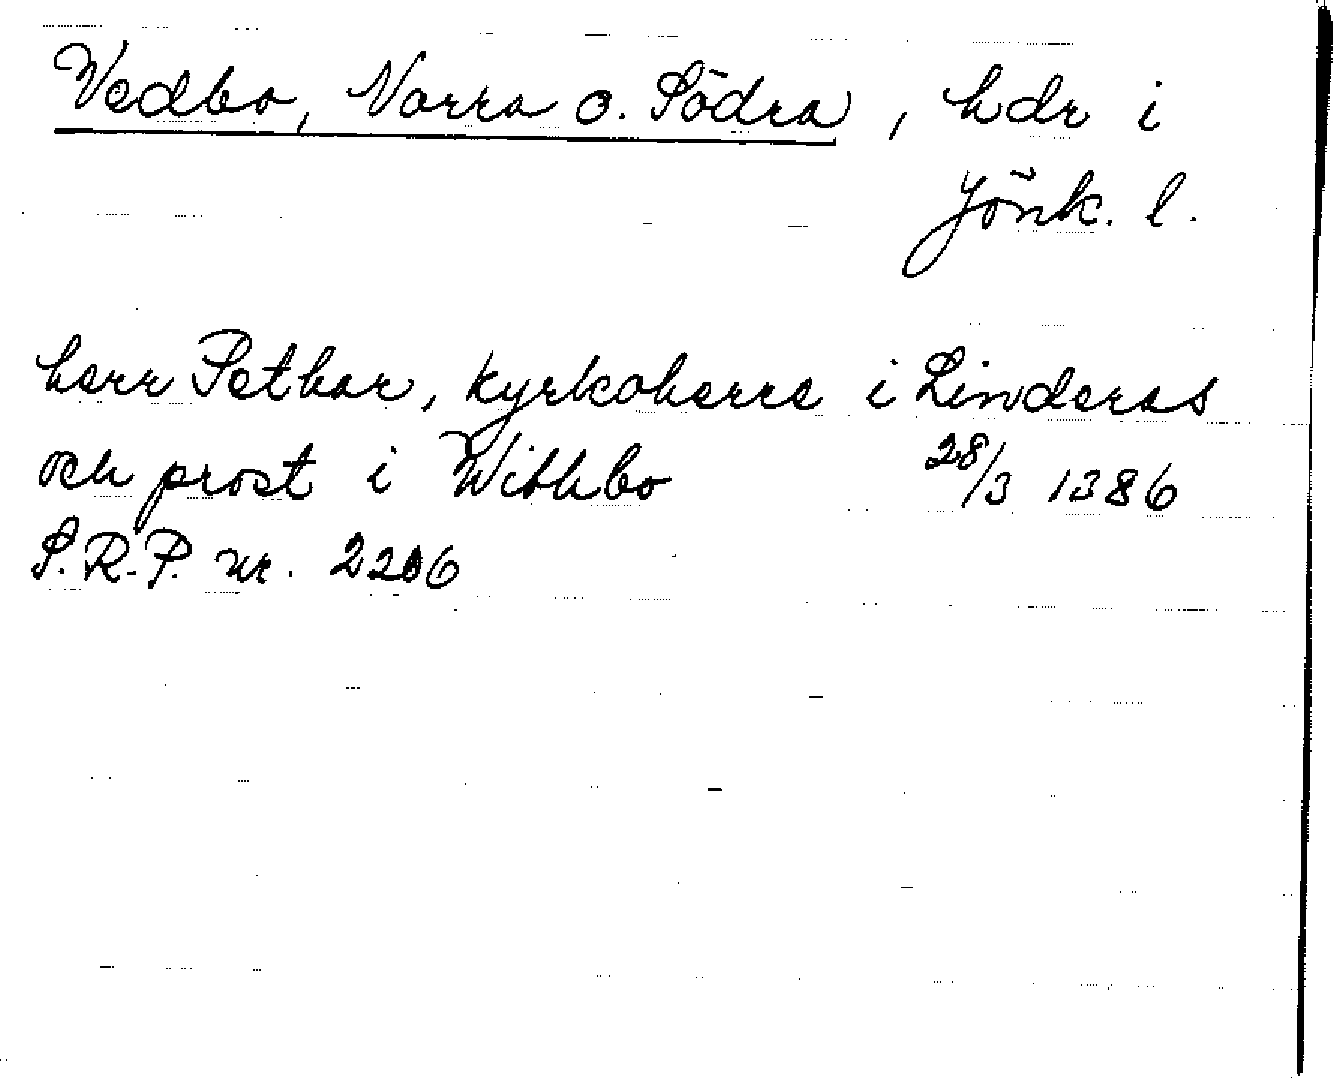 Vedbo, Norra o. Södra, hdr i
Jönk. l.
herr Pethar, kyrkoherre i Linderas
och prost i Withbo 28/3 1386
S.R.P. nr. 2206